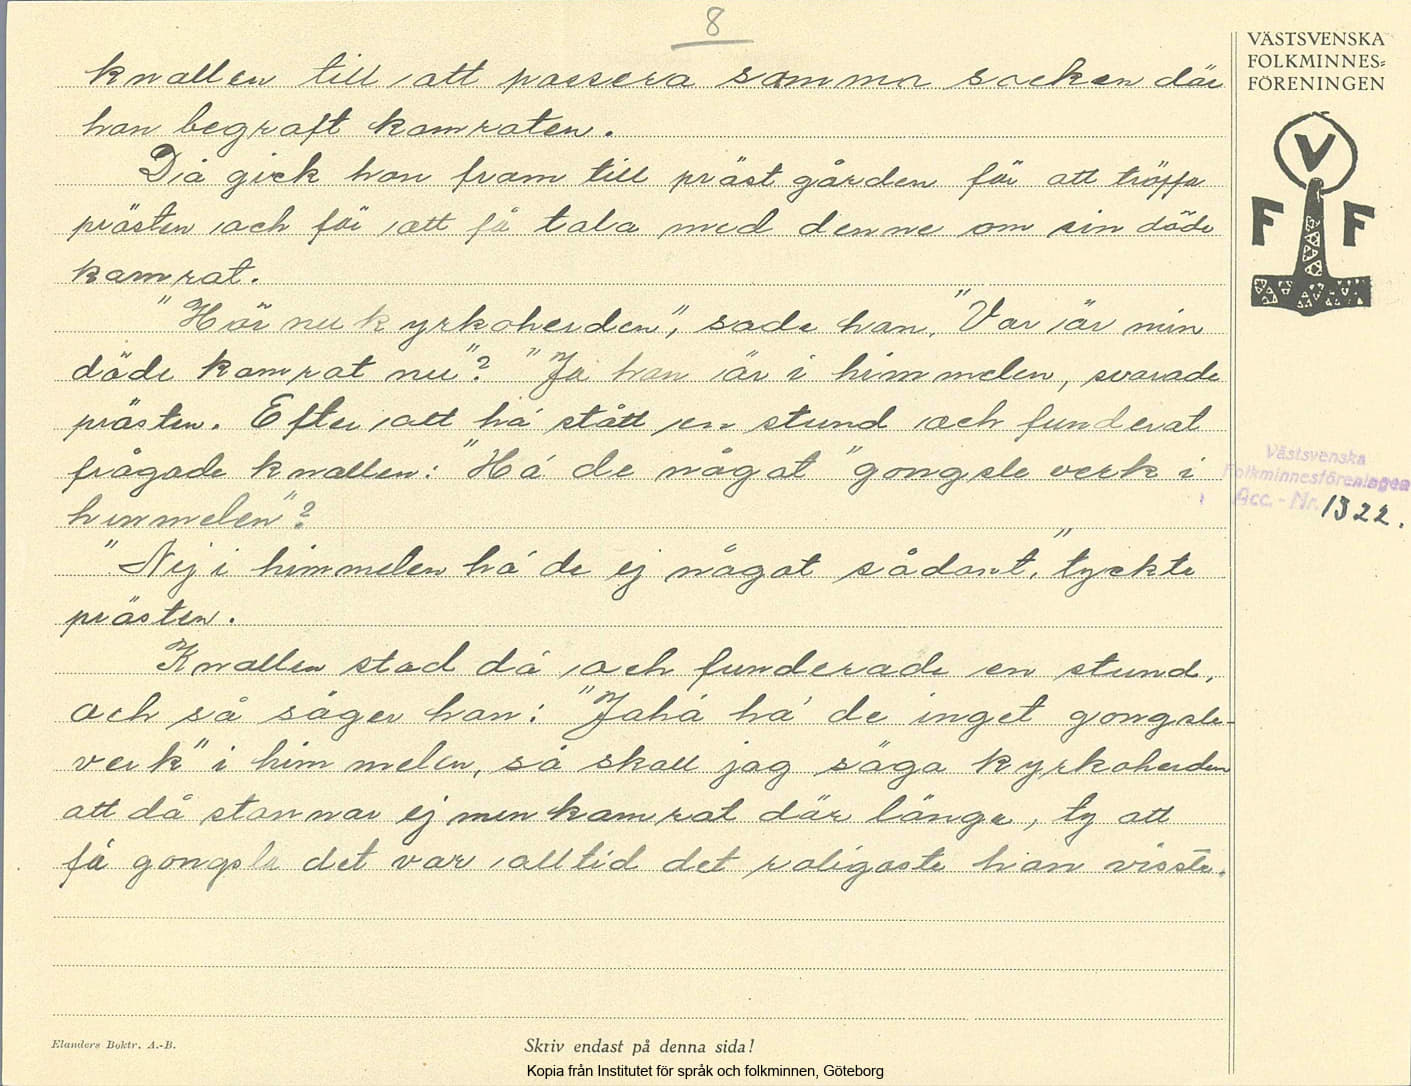 8
VÄSTSVENSKA
FOLKMINNES=
FÖRENINGEN
V
F F
knallen till att passera samma socken där
han begraft kamraten.
Då gick han fram till präst gården för att träffa
prästen och för att få tala med denne om sin döde
kamrat.
"Hör nu kyrkoherden", sade han, "Var är min
döde kamrat nu"? "Ja han är i himmelen, svarade
prästen. Efter att há stått en stund och funderat
frågade knallen: "Há de något "gongsle verk i
himmelen"?
"Nej i himmelen há de ej något sådant," tyckte
prästen.
Knallen stod då och funderade en stund,
och så säger han: "Jahá há de inget gongsle-
verk" i himmelen, så skall jag säga kyrkoherden
att då stannar ej min kamrat där länge, ty att
få gongsla det var alltid det roligaste han visste.
Västsvenska
Folkminnesföreningen
Acc. - Nr. 1322.
Elanders Boktr. A.-B.
Skriv endast på denna sida!
Kopia från Institutet för språk och folkminnen, Göteborg